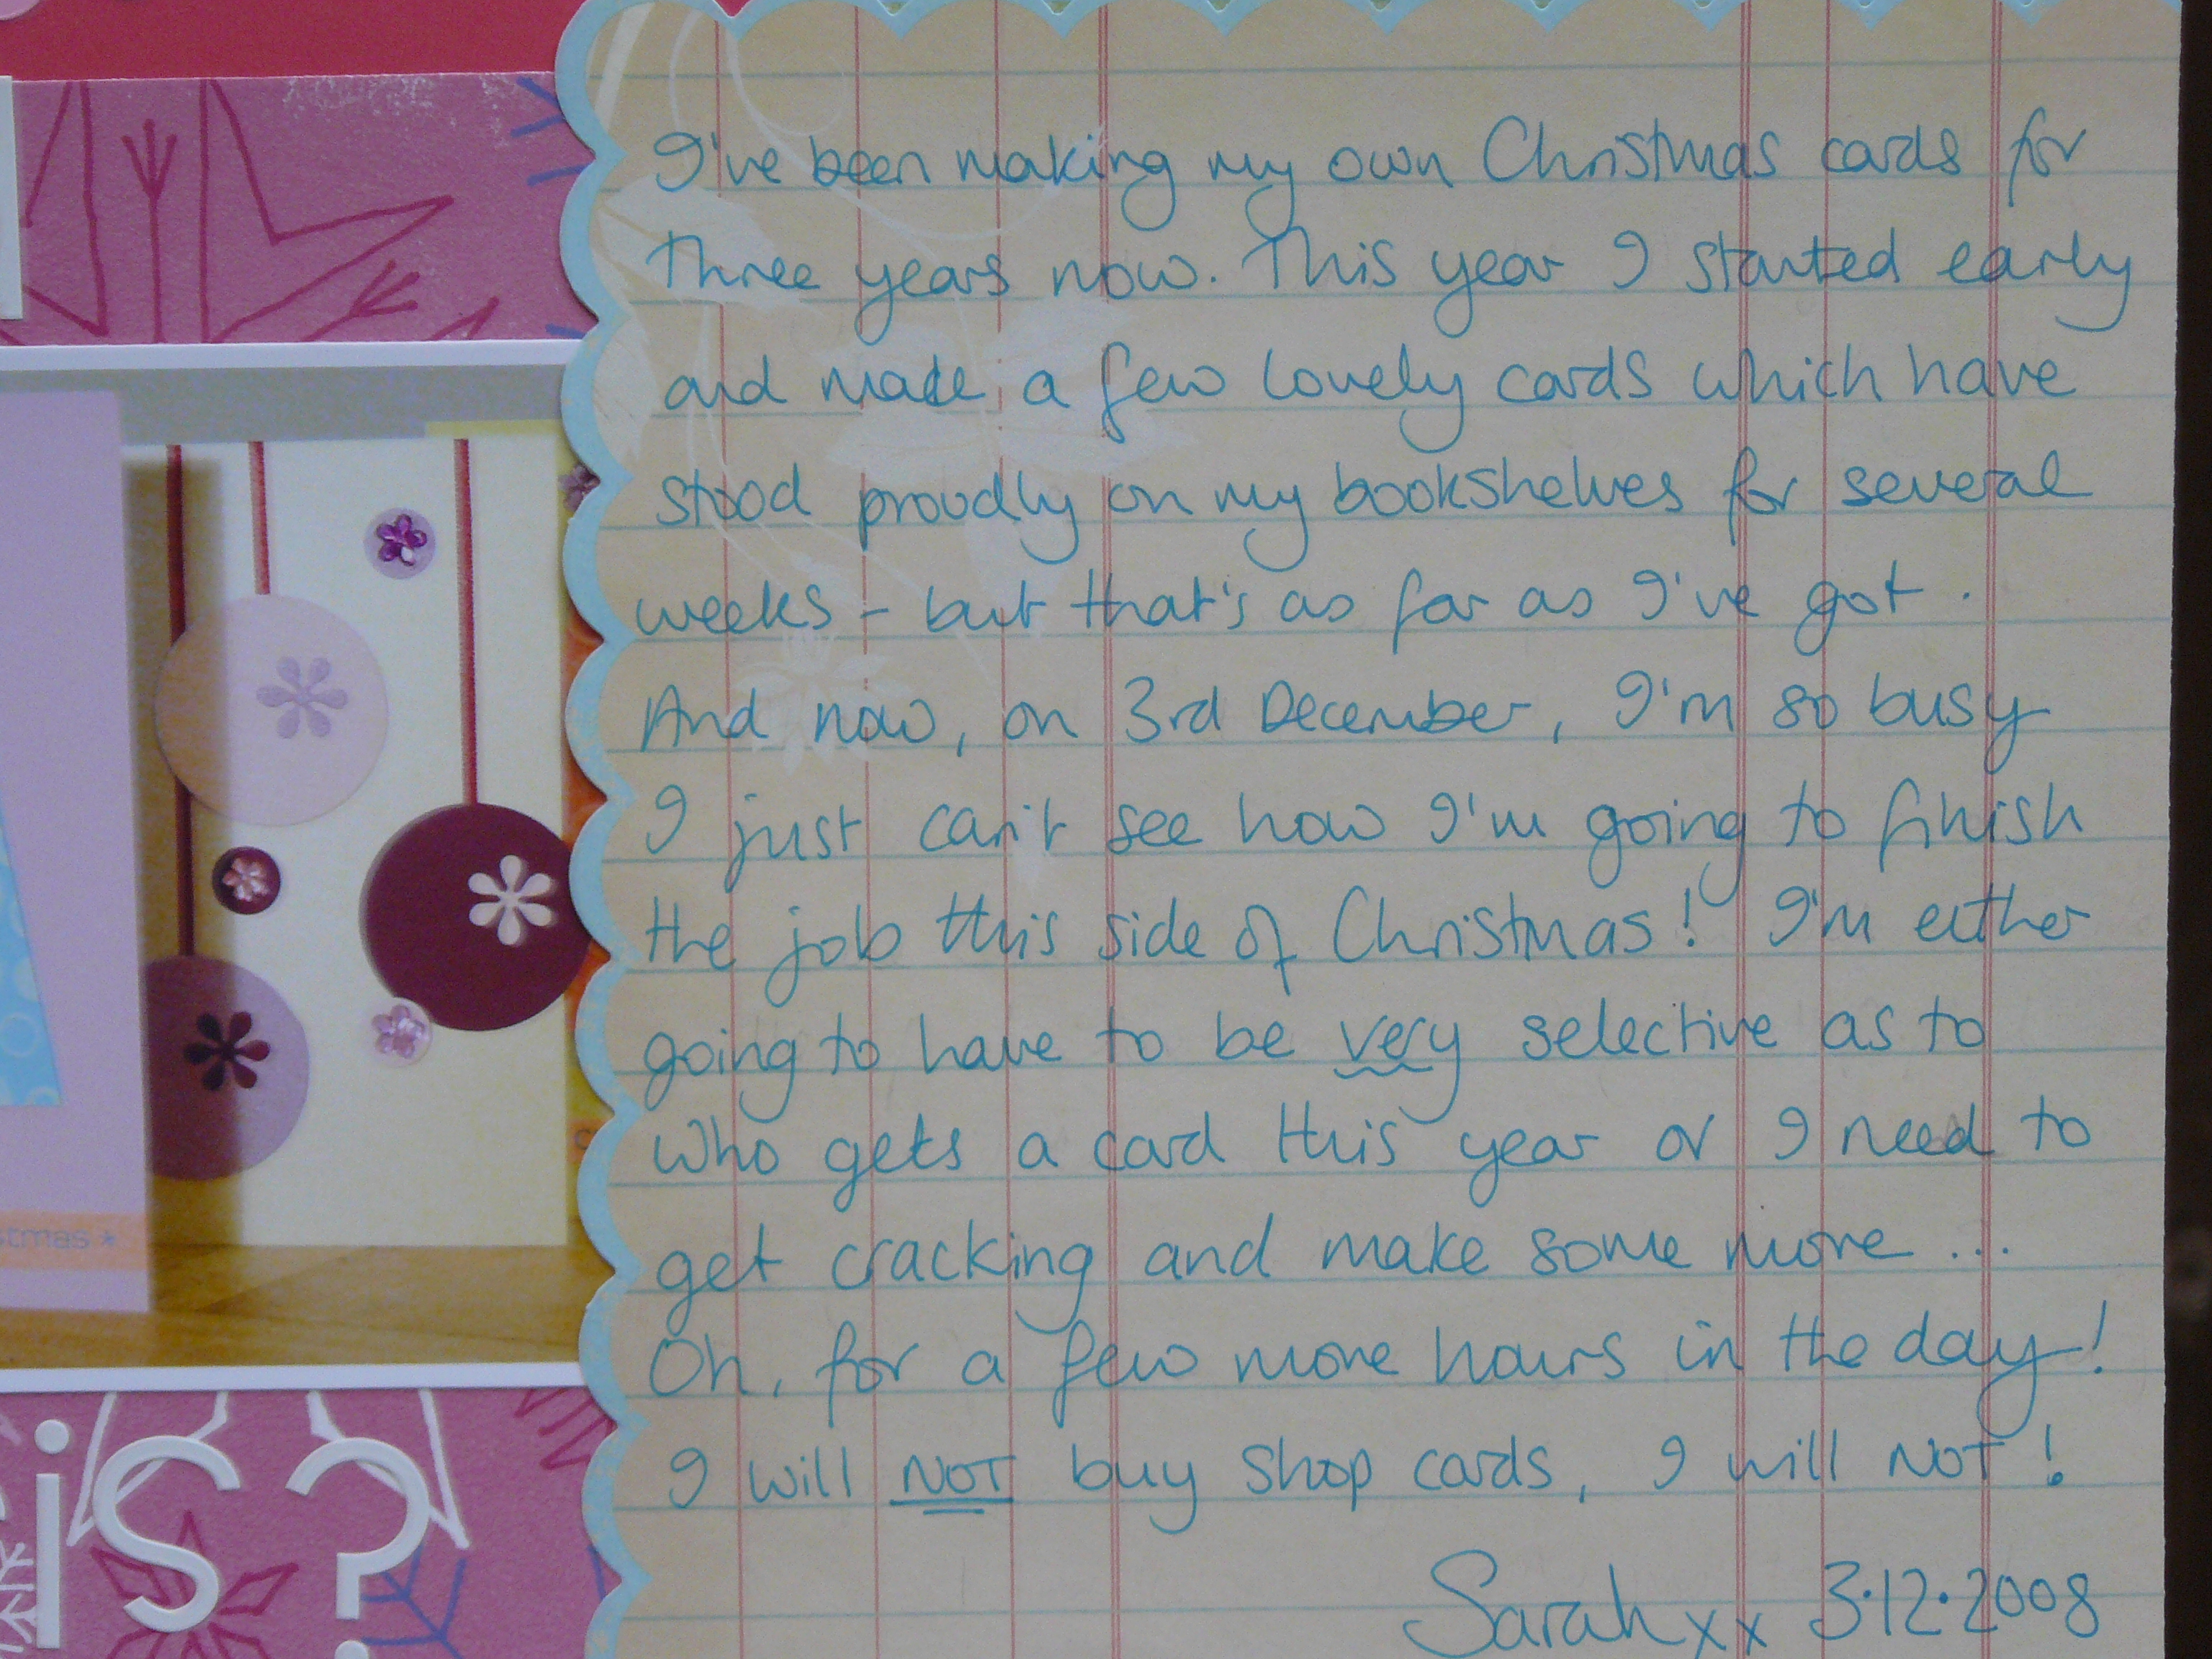 I've been making my own Christmas cards for
three years now. This year I started early
and made a few lovely cards which have
stood proudly on my bookshelves for several
weeks – but that's as far as I've got.
And now, on 3rd December, I'm so busy
I just can't see how I'm going to finish
the job this side of Christmas! I'm either
going to have to be very selective as to
who gets a card this year or I need to
get cracking and make some more...
Oh, for a few more hours in the day!
I will NOT buy shop cards, I will NOT!
Sarah xx 3.12.2008
stmas *
is?